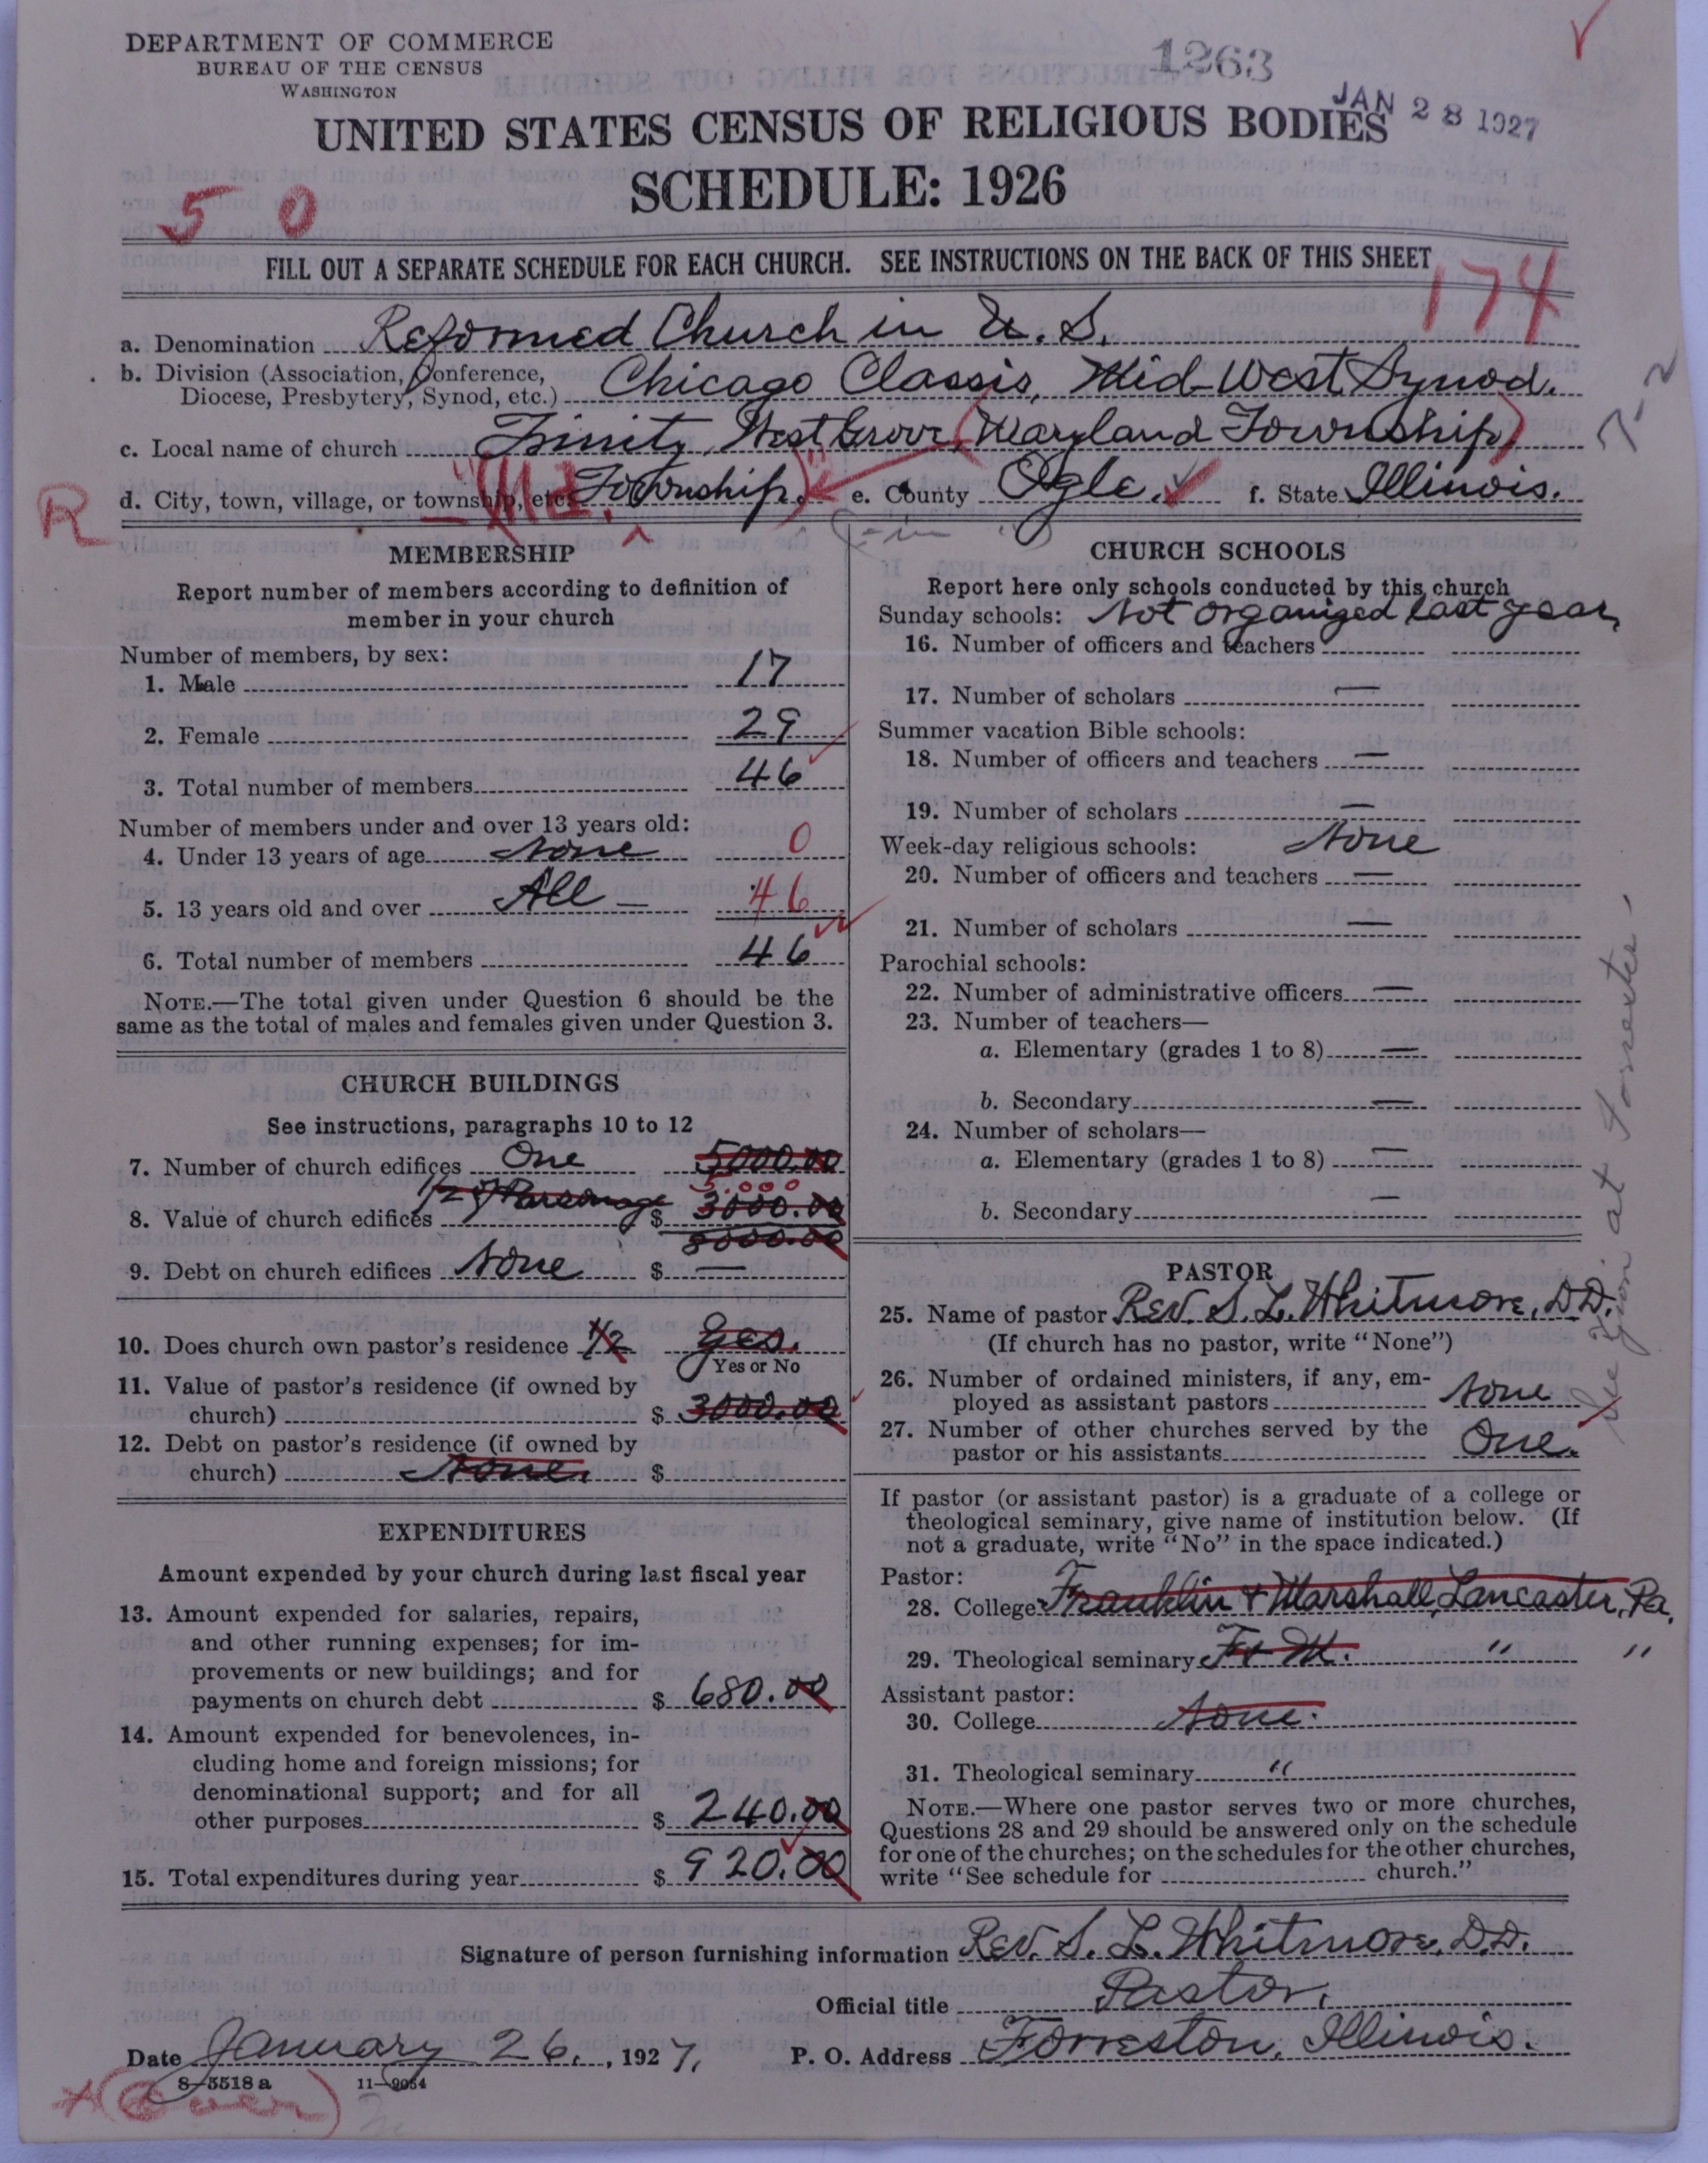 DEPARTMENT OF COMMERCE
BUREAU OF THE CENSUS
WASHINGTON
1263
JAN 28 1927
UNITED STATES CENSUS OF RELIGIOUS BODIES
SCHEDULE: 1926
5 0
FILL OUT A SEPARATE SCHEDULE FOR EACH CHURCH. SEE INSTRUCTIONS ON THE BACK OF THIS SHEET
174
a. Denomination Reformed Church in U. S.
b. Division (Association, Conference,
Diocese, Presbytery, Synod, etc.) Chicago Classis, Mid-West Synod.
7-2
c. Local name of church Trinity, West Grove (Maryland Township)
R
d. City, town, village, or township, etc. "(Md. Township.)" e. County Ogle. f. State Illinois.
MEMBERSHIP
Report number of members according to definition of
member in your church
Number of members, by sex:
1. Male 17
2. Female 29
3. Total number of members 46
Number of members under and over 13 years old:
4. Under 13 years of age None 0
5. 13 years old and over All — 46
6. Total number of members 46
NOTE.—The total given under Question 6 should be the
same as the total of males and females given under Question 3.
CHURCH BUILDINGS
See instructions, paragraphs 10 to 12
7. Number of church edifices One 5000.00
5000
1/2 of Parsonage
8. Value of church edifices $ 3000.00
8000.00
9. Debt on church edifices None $ —
10. Does church own pastor's residence 1/2 Yes.
Yes or No
11. Value of pastor's residence (if owned by
church) $ 3000.00
12. Debt on pastor's residence (if owned by
church) None. $
EXPENDITURES
Amount expended by your church during last fiscal year
13. Amount expended for salaries, repairs,
and other running expenses; for im-
provements or new buildings; and for
payments on church debt $ 680.00
14. Amount expended for benevolences, in-
cluding home and foreign missions; for
denominational support; and for all
other purposes $ 240.00
15. Total expenditures during year $ 920.00
CHURCH SCHOOLS
Report here only schools conducted by this church
Sunday schools: Not organized last year,
16. Number of officers and teachers
17. Number of scholars —
Summer vacation Bible schools:
18. Number of officers and teachers —
19. Number of scholars —
Week-day religious schools: None
20. Number of officers and teachers —
21. Number of scholars —
Parochial schools:
22. Number of administrative officers —
23. Number of teachers—
a. Elementary (grades 1 to 8) —
b. Secondary —
24. Number of scholars—
a. Elementary (grades 1 to 8) —
b. Secondary —
PASTOR
25. Name of pastor Rev. S. L. Whitmore, D.D.
(If church has no pastor, write "None")
26. Number of ordained ministers, if any, em-
ployed as assistant pastors None
27. Number of other churches served by the
pastor or his assistants One.
If pastor (or assistant pastor) is a graduate of a college or
theological seminary, give name of institution below. (If
not a graduate, write "No" in the space indicated.)
Pastor:
28. College Franklin & Marshall, Lancaster, Pa.
29. Theological seminary F & M. " "
Assistant pastor:
30. College None.
31. Theological seminary "
NOTE.—Where one pastor serves two or more churches,
Questions 28 and 29 should be answered only on the schedule
for one of the churches; on the schedules for the other churches,
write "See schedule for church."
See Zion at Forreston
Signature of person furnishing information Rev. S. L. Whitmore, D.D.
Official title Pastor,
Date January 26, 1927, P. O. Address Forreston, Illinois.
8-5518 a 11-9054
(Over)